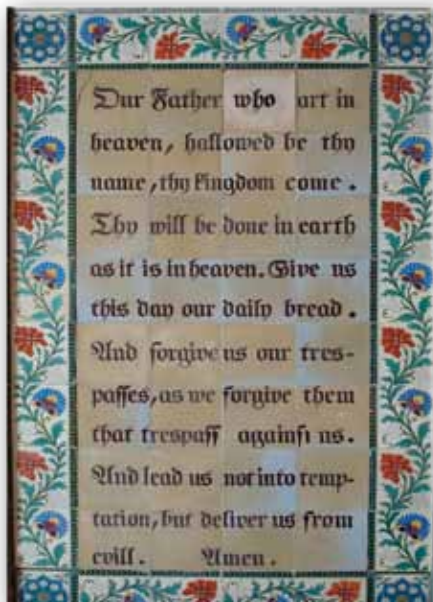 Our Father who art in
heaven, hallowed be thy
name, thy kingdom come.
Thy will be done in earth
as it is in heaven. Give us
this day our daily bread.
And forgive us our tres-
passes, as we forgive them
that trespass against us.
And lead us not into temp-
tation, but deliver us from
evill. Amen.